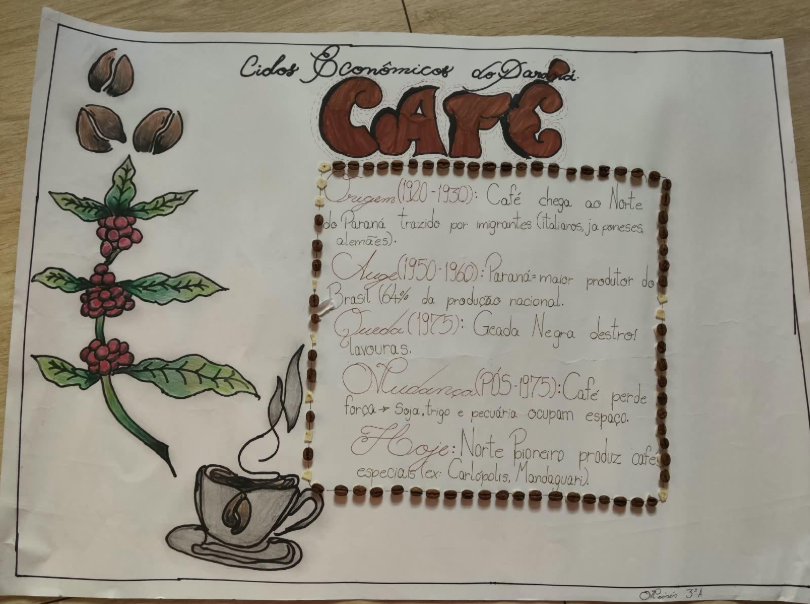 Ciclos Econômicos do Paraná
CAFÉ
Origem (1920-1930): Café chega ao Norte
do Paraná trazido por imigrantes (italianos, japoneses,
alemães).
Auge (1950-1960): Paraná = maior produtor do
Brasil (64% da produção nacional.
Queda (1975): Geada Negra destroi
lavouras.
Mudança (PÓS-1975): Café perde
força → Soja, trigo e pecuária ocupam espaço.
Hoje: Norte Pioneiro produz cafés
especiais (ex: Carlópolis, Mandaguari).
3ºA